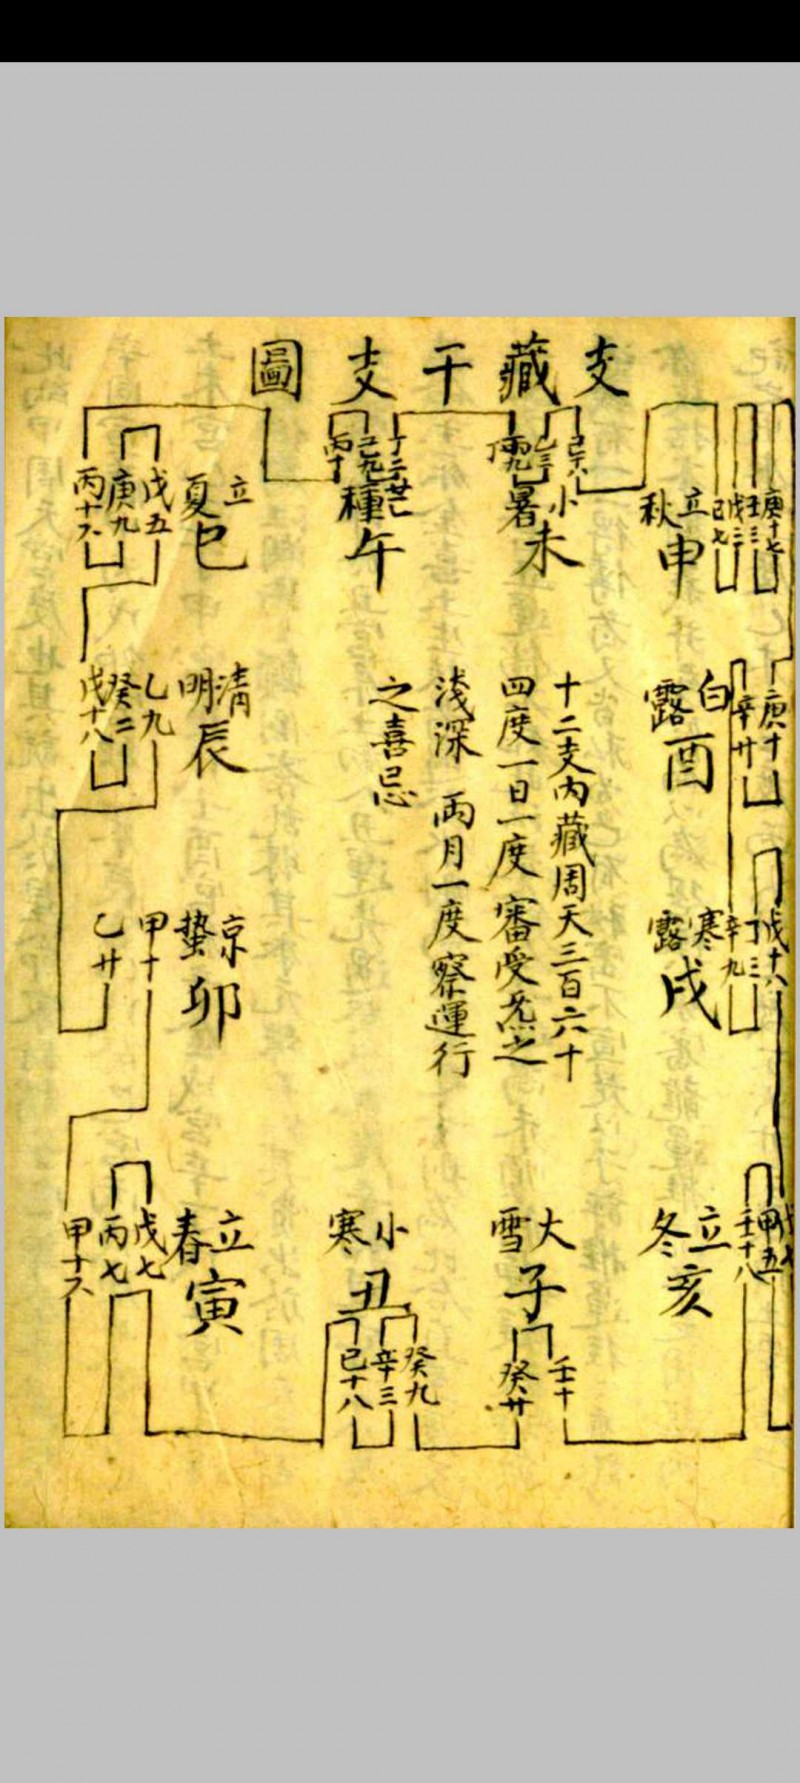 支藏干支圖
立夏
巳
戊五
庚九
丙十六
種
午
丁
己九
丙十
小暑
未
己十八
乙三
丁
立秋
申
己七
戊三
壬三
庚十七
清明
辰
乙九
癸二
戊十八
白露
酉
庚十
辛廿
十二支內藏周天三百六十
四度一日一度審受炁之
淺深 兩月一度察運行
之喜忌
京蟄
卯
甲十
乙廿
寒露
戌
辛九
丁三
戊十八
立春
寅
戊七
丙七
甲十六
小寒
丑
癸九
辛三
己十八
大雪
子
壬十
癸廿
立冬
亥
戊七
甲五
壬十八